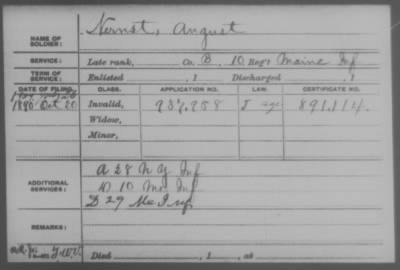 Nernst, August
NAME OF SOLDIER:
SERVICE: Late rank, Co. B, 10 Reg't Maine Inf
TERM OF SERVICE: Enlisted , 1 Discharged , 1
DATE OF FILING. CLASS. APPLICATION NO. LAW. CERTIFICATE NO.
1890 Oct 20 Invalid, 937.958 J 891.114.
Widow,
Minor,
A 28 N Y Inf
ADDITIONAL SERVICES: D 10 Me Inf
D 29 Me Inf
REMARKS:
Died , 1 , at